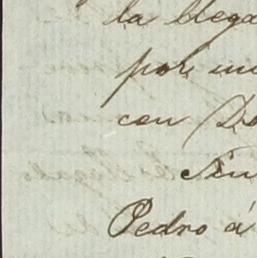 la llega
por un
con Do
Sin
Pedro á